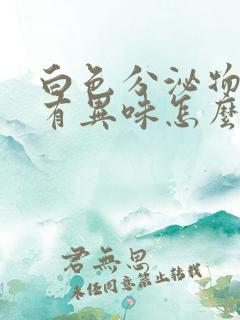 白色分泌物
有異味怎麼
君無思
未经同意禁止转载